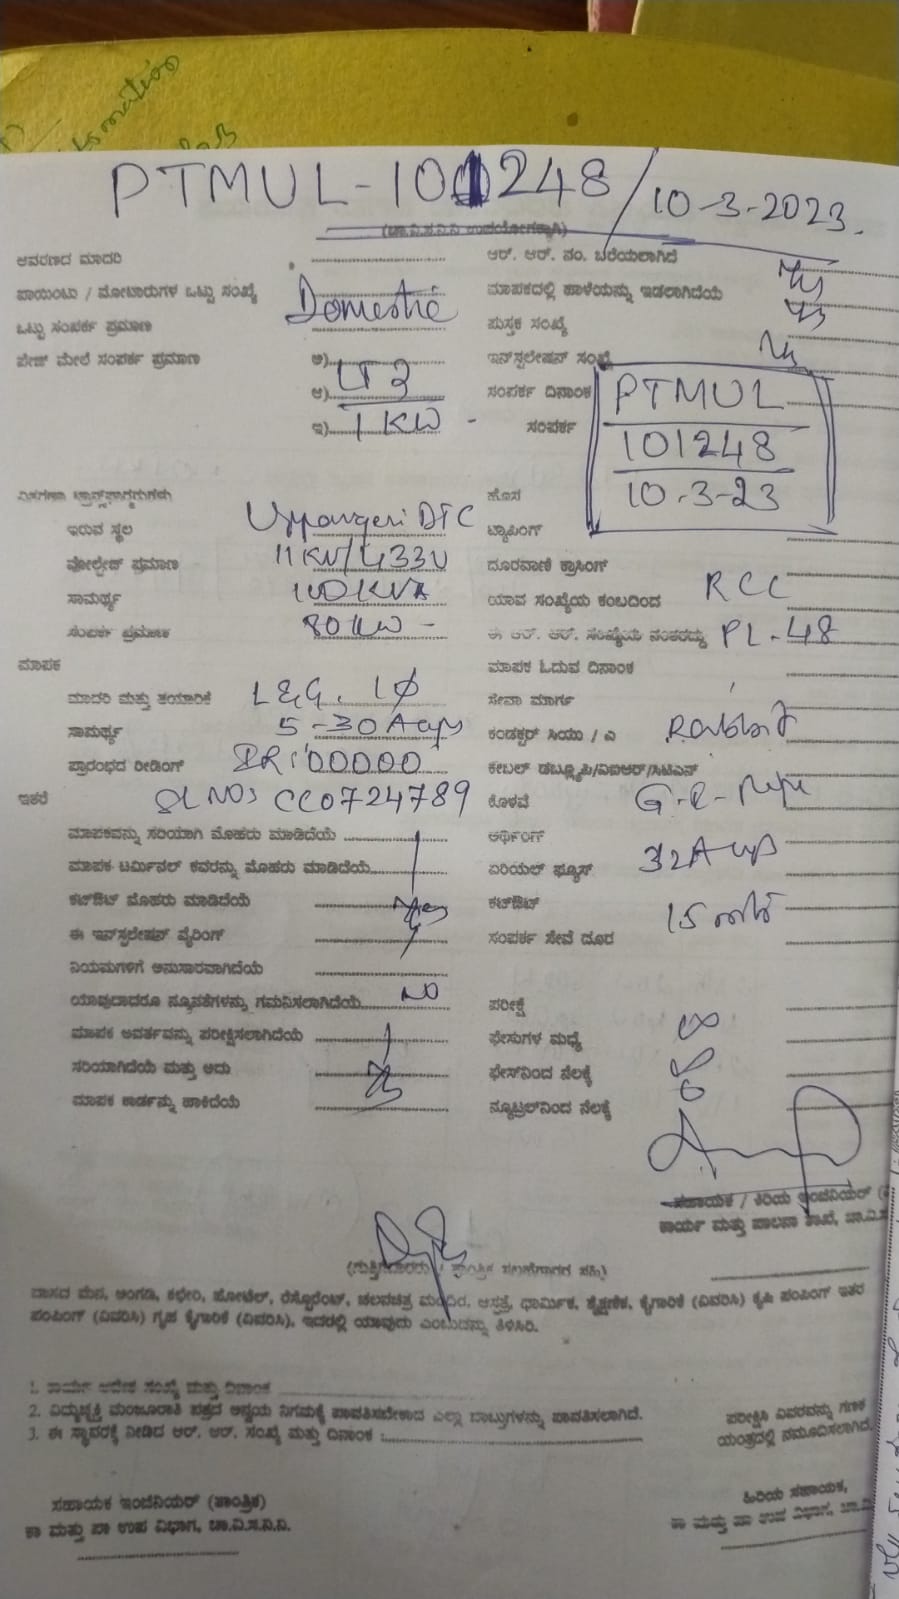 PTMUL-101248/10-3-2023.
(ಚಾ.ವಿ.ಸ.ನಿ.ನಿ ಉಪಯೋಗಕ್ಕಾಗಿ)
ಆವರಣದ ಮಾದರಿ
ಪಾಯಿಂಟು / ಮೋಟಾರುಗಳ ಒಟ್ಟು ಸಂಖ್ಯೆ Domestic
ಒಟ್ಟು ಸಂಪರ್ಕ ಪ್ರಮಾಣ
ಪೇಜ್ ಮೇಲೆ ಸಂಪರ್ಕ ಪ್ರಮಾಣ ಅ)
ಆ) LT2
ಇ) 1 KW -
ಆರ್. ಆರ್. ನಂ. ಬರೆಯಲಾಗಿದೆ
ಮಾಪಕದಲ್ಲಿ ಹಾಳೆಯನ್ನು ಇಡಲಾಗಿದೆಯೆ
ಪುಸ್ತಕ ಸಂಖ್ಯೆ
ಇನ್‌ಸ್ಟಲೇಷನ್ ಸಂಖ್ಯೆ
ಸಂಪರ್ಕ ದಿನಾಂಕ PTMUL
ಸಂಪರ್ಕ 101248
10.3-23
ಇರುವ ಸ್ಥಲ DTC
ವೋಲ್ಟೇಜ್ ಪ್ರಮಾಣ 11KV/433V
ಸಾಮರ್ಥ್ಯ 100KVA
ಸಂಪರ್ಕ ಪ್ರಮಾಣ 80KW -
ಮಾಪಕ
ಮಾದರಿ ಮತ್ತು ತಯಾರಿಕೆ L&G. 1ϕ
ಸಾಮರ್ಥ್ಯ 5-30A
ಪ್ರಾರಂಭದ ರೀಡಿಂಗ್ IR:00000
ಇತರೆ SL NO: CC0724789
ಮಾಪಕವನ್ನು ಸರಿಯಾಗಿ ಮೊಹರು ಮಾಡಿದೆಯೆ
ಮಾಪಕ ಟರ್ಮಿನಲ್ ಕವರನ್ನು ಮೊಹರು ಮಾಡಿದೆಯೆ
ಕಟ್‌ಔಟ್ ಮೊಹರು ಮಾಡಿದೆಯೆ Yes
ಈ ಇನ್‌ಸ್ಟಲೇಷನ್ ವೈರಿಂಗ್
ನಿಯಮಗಳಿಗೆ ಅನುಸಾರವಾಗಿದೆಯೆ
ಯಾವುದಾದರೂ ನ್ಯೂನತೆಗಳನ್ನು ಗಮನಿಸಲಾಗಿದೆಯೆ NO
ಮಾಪಕ ಆವರ್ತವನ್ನು ಪರೀಕ್ಷಿಸಲಾಗಿದೆಯೆ
ಸರಿಯಾಗಿದೆಯೆ ಮತ್ತು ಅದು
ಮಾಪಕ ಕಾರ್ಡನ್ನು ಹಾಕಿದೆಯೆ
ಹೊಸ
ಟ್ಯಾಪಿಂಗ್
ದೂರವಾಣಿ ಕ್ರಾಸಿಂಗ್
ಯಾವ ಸಂಖ್ಯೆಯ ಕಂಬದಿಂದ RCC
ಈ ಆರ್. ಆರ್. ಸಂಖ್ಯೆಯ ನಂತರದ್ದು PL-48
ಮಾಪಕ ಓದುವ ದಿನಾಂಕ
ಸೇವಾ ಮಾರ್ಗ
ಕಂಡಕ್ಟರ್ ಸಿಯು / ಎ Rabbit
ಕೇಬಲ್ ಡಬ್ಲ್ಯೂಪಿ/ವಿಐಆರ್/ಸಿಟಿಎಸ್
ಕೊಳವೆ G.I-Pipe
ಅರ್ಥಿಂಗ್
ಏರಿಯಲ್ ಫ್ಯೂಸ್ 32A
ಕಟ್‌ಔಟ್
ಸಂಪರ್ಕ ಸೇವೆ ದೂರ 15
ಪರೀಕ್ಷೆ
ಫೇಸುಗಳ ಮಧ್ಯೆ ∞
ಫೇಸ್‌ನಿಂದ ನೆಲಕ್ಕೆ
ನ್ಯೂಟ್ರಲ್‌ನಿಂದ ನೆಲಕ್ಕೆ
ಸಹಾಯಕ / ಕಿರಿಯ ಇಂಜಿನಿಯರ್
ಕಾರ್ಯ ಮತ್ತು ಪಾಲನಾ ಶಾಖೆ, ಚಾ.ವಿ.ಸ
(ಗುತ್ತಿಗೆದಾರರು / ತಾಂತ್ರಿಕ ಸಲಹೆಗಾರರ ಸಹಿ)
ವಾಸದ ಮನೆ, ಅಂಗಡಿ, ಕಛೇರಿ, ಹೋಟೆಲ್, ರೆಸ್ಟೊರೆಂಟ್, ಚಲನಚಿತ್ರ ಮಂದಿರ, ಆಸ್ಪತ್ರೆ, ಧಾರ್ಮಿಕ, ಶೈಕ್ಷಣಿಕ, ಕೈಗಾರಿಕೆ (ವಿವರಿಸಿ) ಕೃಷಿ ಪಂಪಿಂಗ್ ಇತರ
ಪಂಪಿಂಗ್ (ವಿವರಿಸಿ) ಗೃಹ ಕೈಗಾರಿಕೆ (ವಿವರಿಸಿ), ಇದರಲ್ಲಿ ಯಾವುದು ಎಂಬುದನ್ನು ತಿಳಿಸಿರಿ.
1. ಕಾರ್ಯ ಆದೇಶ ಸಂಖ್ಯೆ ಮತ್ತು ದಿನಾಂಕ
2. ವಿದ್ಯುಚ್ಛಕ್ತಿ ಮಂಜೂರಾತಿ ಪತ್ರದ ಅನ್ವಯ ನಿಗಮಕ್ಕೆ ಪಾವತಿಸಬೇಕಾದ ಎಲ್ಲಾ ಬಾಬ್ತುಗಳನ್ನು ಪಾವತಿಸಲಾಗಿದೆ.
3. ಈ ಸ್ಥಾವರಕ್ಕೆ ನೀಡಿದ ಆರ್. ಆರ್. ಸಂಖ್ಯೆ ಮತ್ತು ದಿನಾಂಕ :
ಪರೀಕ್ಷಿಸಿ ವಿವರವನ್ನು ಗಣಕ
ಯಂತ್ರದಲ್ಲಿ ನಮೂದಿಸಲಾಗಿದೆ.
ಸಹಾಯಕ ಇಂಜಿನಿಯರ್ (ತಾಂತ್ರಿಕ)
ಕಾ ಮತ್ತು ಪಾ ಉಪ ವಿಭಾಗ, ಚಾ.ವಿ.ಸ.ನಿ.ನಿ.
ಹಿರಿಯ ಸಹಾಯಕ,
ಕಾ ಮತ್ತು ಪಾ ಉಪ ವಿಭಾಗ, ಚಾ.ವಿ